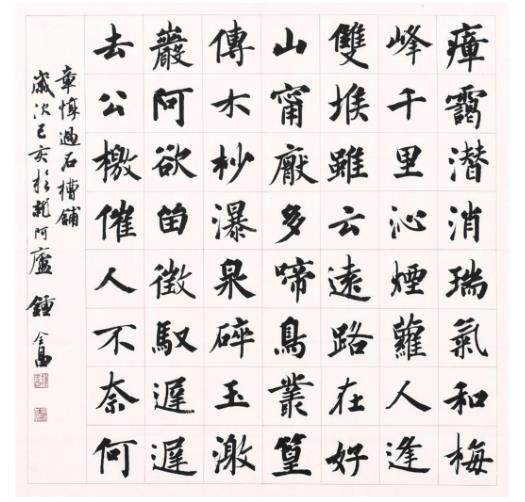 瘴靄潜消瑞氣和梅
峰千里沁煙蘿人逢
雙堠雖云遠路在好
山甯厭多啼鳥叢篁
傳木杪瀑泉碎玉激
巖阿欲留徵馭遲遲
去公檄催人不奈何
章惇過石槽鋪
歲次己亥於阿廬鍾全昌